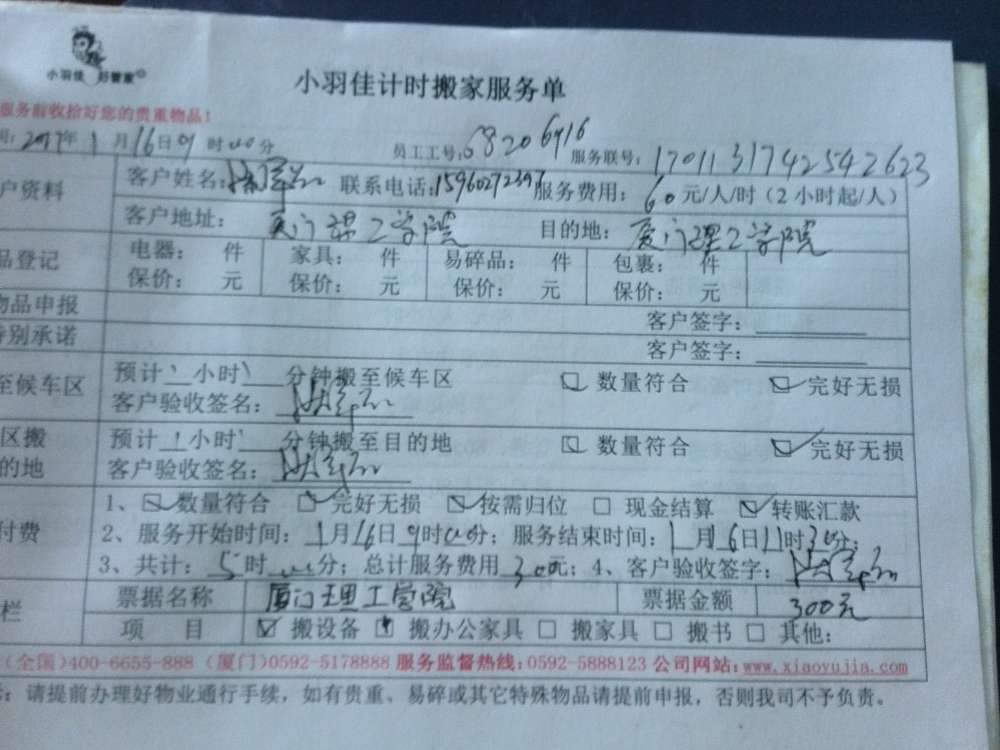 小羽佳 好管家
小羽佳计时搬家服务单
服务前收拾好您的贵重物品！
2017年1月16日9时00分 员工工号：68206916 服务联号：1701131742542623
户资料 客户姓名： 联系电话：15960272397 服务费用：60元/人/时（2小时起/人）
客户地址：厦门理工学院 目的地：厦门理工学院
品登记 电器： 件 家具： 件 易碎品： 件 包裹： 件
保价： 元 保价： 元 保价： 元 保价： 元
物品申报 客户签字：
特别承诺 客户签字：
至候车区 预计 1 小时 分钟搬至候车区 数量符合 完好无损
客户验收签名：
区搬 预计 1 小时 分钟搬至目的地 数量符合 完好无损
的地 客户验收签名：
1、数量符合 完好无损 按需归位 现金结算 转账汇款
付费 2、服务开始时间：1月16日9时00分；服务结束时间：1月6日11时30分；
3、共计：5时 分；总计服务费用300元；4、客户验收签字：
栏 票据名称 厦门理工学院 票据金额 300元
项 目 搬设备 搬办公家具 搬家具 搬书 其他：
（全国）400-6655-888（厦门）0592-5178888 服务监督热线：0592-5888123 公司网站：www.xiaoyujia.com
：请提前办理好物业通行手续，如有贵重、易碎或其它特殊物品请提前申报，否则我司不予负责。